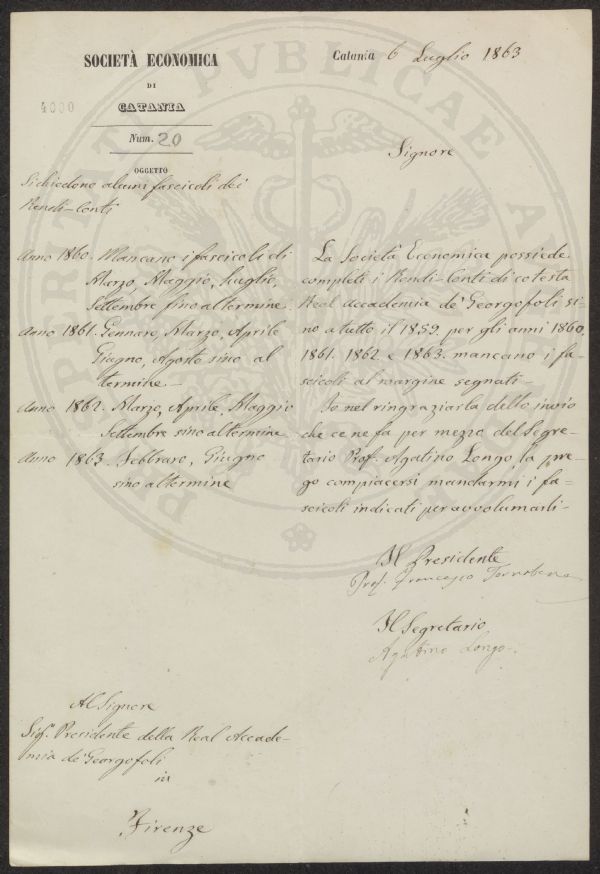 SOCIETÀ ECONOMICA
DI
CATANIA
4000
Num. 20
OGGETTO
Si chiedono alcuni fascicoli dei
Rendi-Conti
Catania 6 Luglio 1863
Signore
Anno 1860. Mancano i fascicoli di
Marzo, Maggio, Luglio,
Settembre sino al termine.
Anno 1861. Gennaro, Marzo, Aprile
Giugno, Agosto sino al
termine —
Anno 1862. Marzo, Aprile, Maggio
Settembre sino al termine
Anno 1863. Febbraro, Giugno
sino al termine
La Società Economica possiede
completi i Rendi-Conti di cotesta
Real Accademia de' Georgofoli si-
no a tutto il 1859. per gli anni 1860.
1861. 1862 e 1863. mancano i fa-
scicoli al margine segnati —
Io nel ringraziarla dello invio
che ce ne fa per mezzo del Segre-
tario Prof. Agatino Longo, la pre-
go compiacersi mandarmi i fa-
scicoli indicati per avvolumarli —
Il Presidente
Prof. Francesco Tornabene
Il Segretario
Agatino Longo
Al Signore
Sig.r Presidente della Real Accade-
mia de' Georgofoli
in
Firenze
PUBLICAE